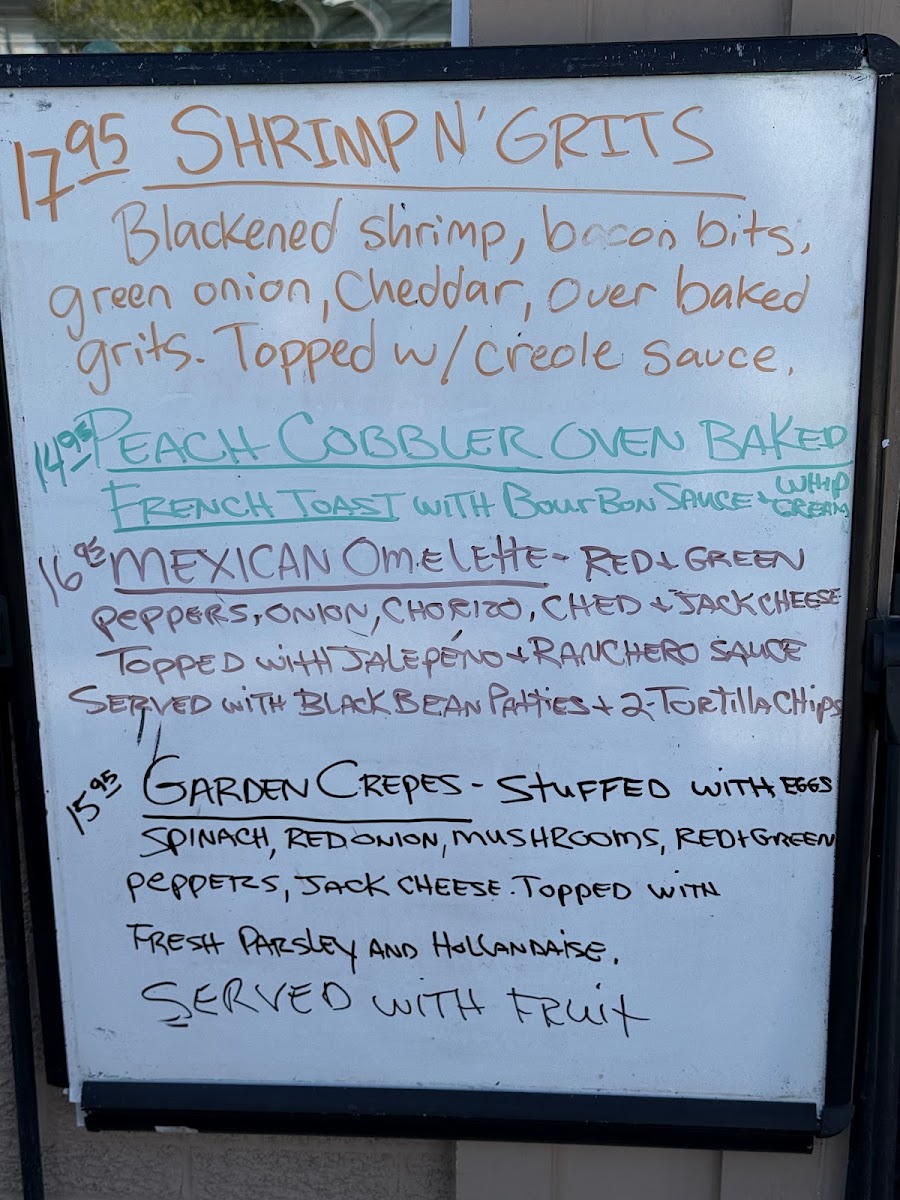 17 95 SHRIMP N' GRITS
Blackened shrimp, bacon bits,
green onion, Cheddar, over baked
grits. Topped w/ creole sauce.
14 95 PEACH COBBLER OVEN BAKED
FRENCH TOAST WITH BOURBON SAUCE + WHIP CREAM
16 95 MEXICAN OMELETTE - RED + GREEN
PEPPERS, ONION, CHORIZO, CHED + JACK CHEESE
TOPPED WITH JALEPÉNO + RANCHERO SAUCE
SERVED WITH BLACK BEAN PATTIES + 2-TORTILLA CHIPS
15 95 GARDEN CREPES - STUFFED WITH EGGS
SPINACH, RED ONION, MUSHROOMS, RED + GREEN
PEPPERS, JACK CHEESE. TOPPED WITH
FRESH PARSLEY AND HOLLANDAISE.
SERVED WITH FRUIT